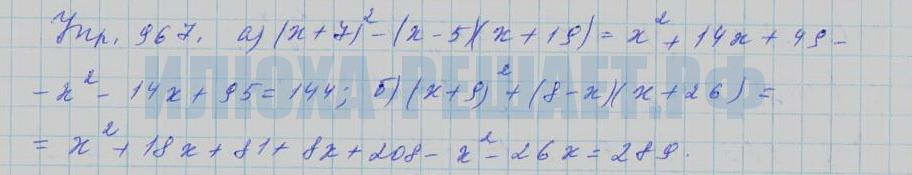 Упр. 967. а) (x+7)² - (x-5)(x+19) = x² + 14x + 49 -
- x² - 14x + 95 = 144; б) (x+9)² + (8-x)(x+26) =
ИЛЮХА-РЕШАЕТ.РФ
= x² + 18x + 81 + 8x + 208 - x² - 26x = 289.